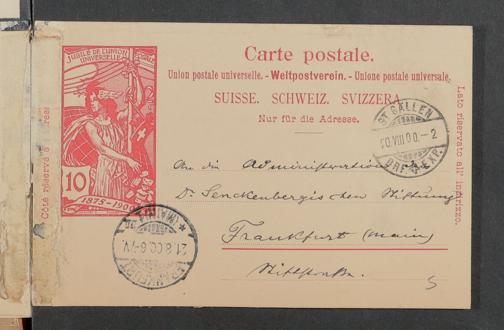 JUBILÉ DE L'UNION
UNIVERSELLE
10
1875-1900
Carte postale.
Union postale universelle. - Weltpostverein. - Unione postale universale.
SUISSE. SCHWEIZ. SVIZZERA
Nur für die Adresse.
Côté réservé à
Lato riservato all' indirizzo.
ST. GALLEN
20.VIII.00.-2
BRF. EXP.
An die Administration der
Dr. Senckenbergischen Stiftung
Frankfurt (Main)
Stiftstraße.
(MAIN)
21.8.00.6-7V.
5